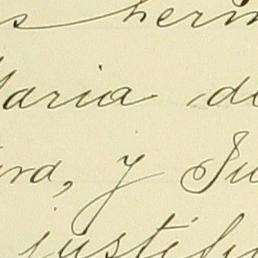 s herm
Maria de
ra, y Ju
justif